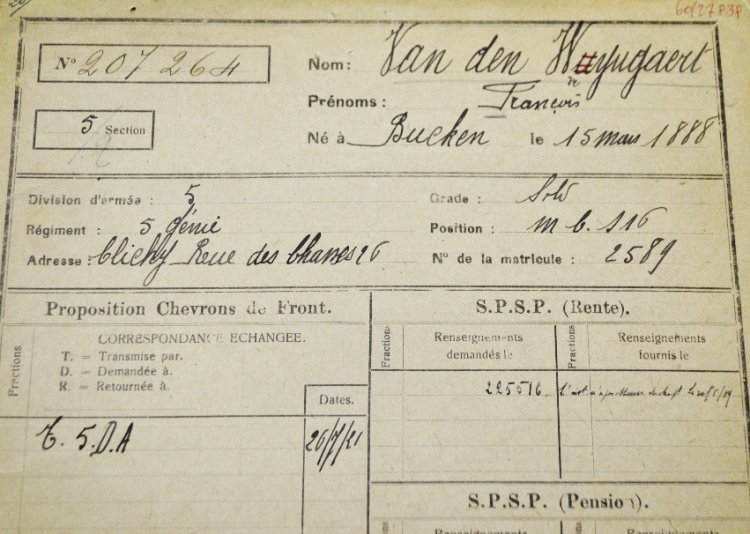 60/27838
N° 207264
Nom: Van den Wyngaert
Prénoms: François
5 Section
Né à Bucken le 15 mars 1888
Division d'armée : 5
Grade : Sold
Régiment : 5 génie
Position : m b. 116
Adresse : Clichy Rue des Chasses 26
N° de la matricule : 2589
Proposition Chevrons de Front.
S.P.S.P. (Rente).
Fractions
CORRESPONDANCE ECHANGEE.
T. = Transmise par.
D. = Demandée à.
R. = Retournée à.
Dates.
Fractions
Renseignements
demandés le
Fractions
Renseignements
fournis le
225516
T. 5.D.A 26/7/21
S.P.S.P. (Pension).
Renseignements
Renseignements